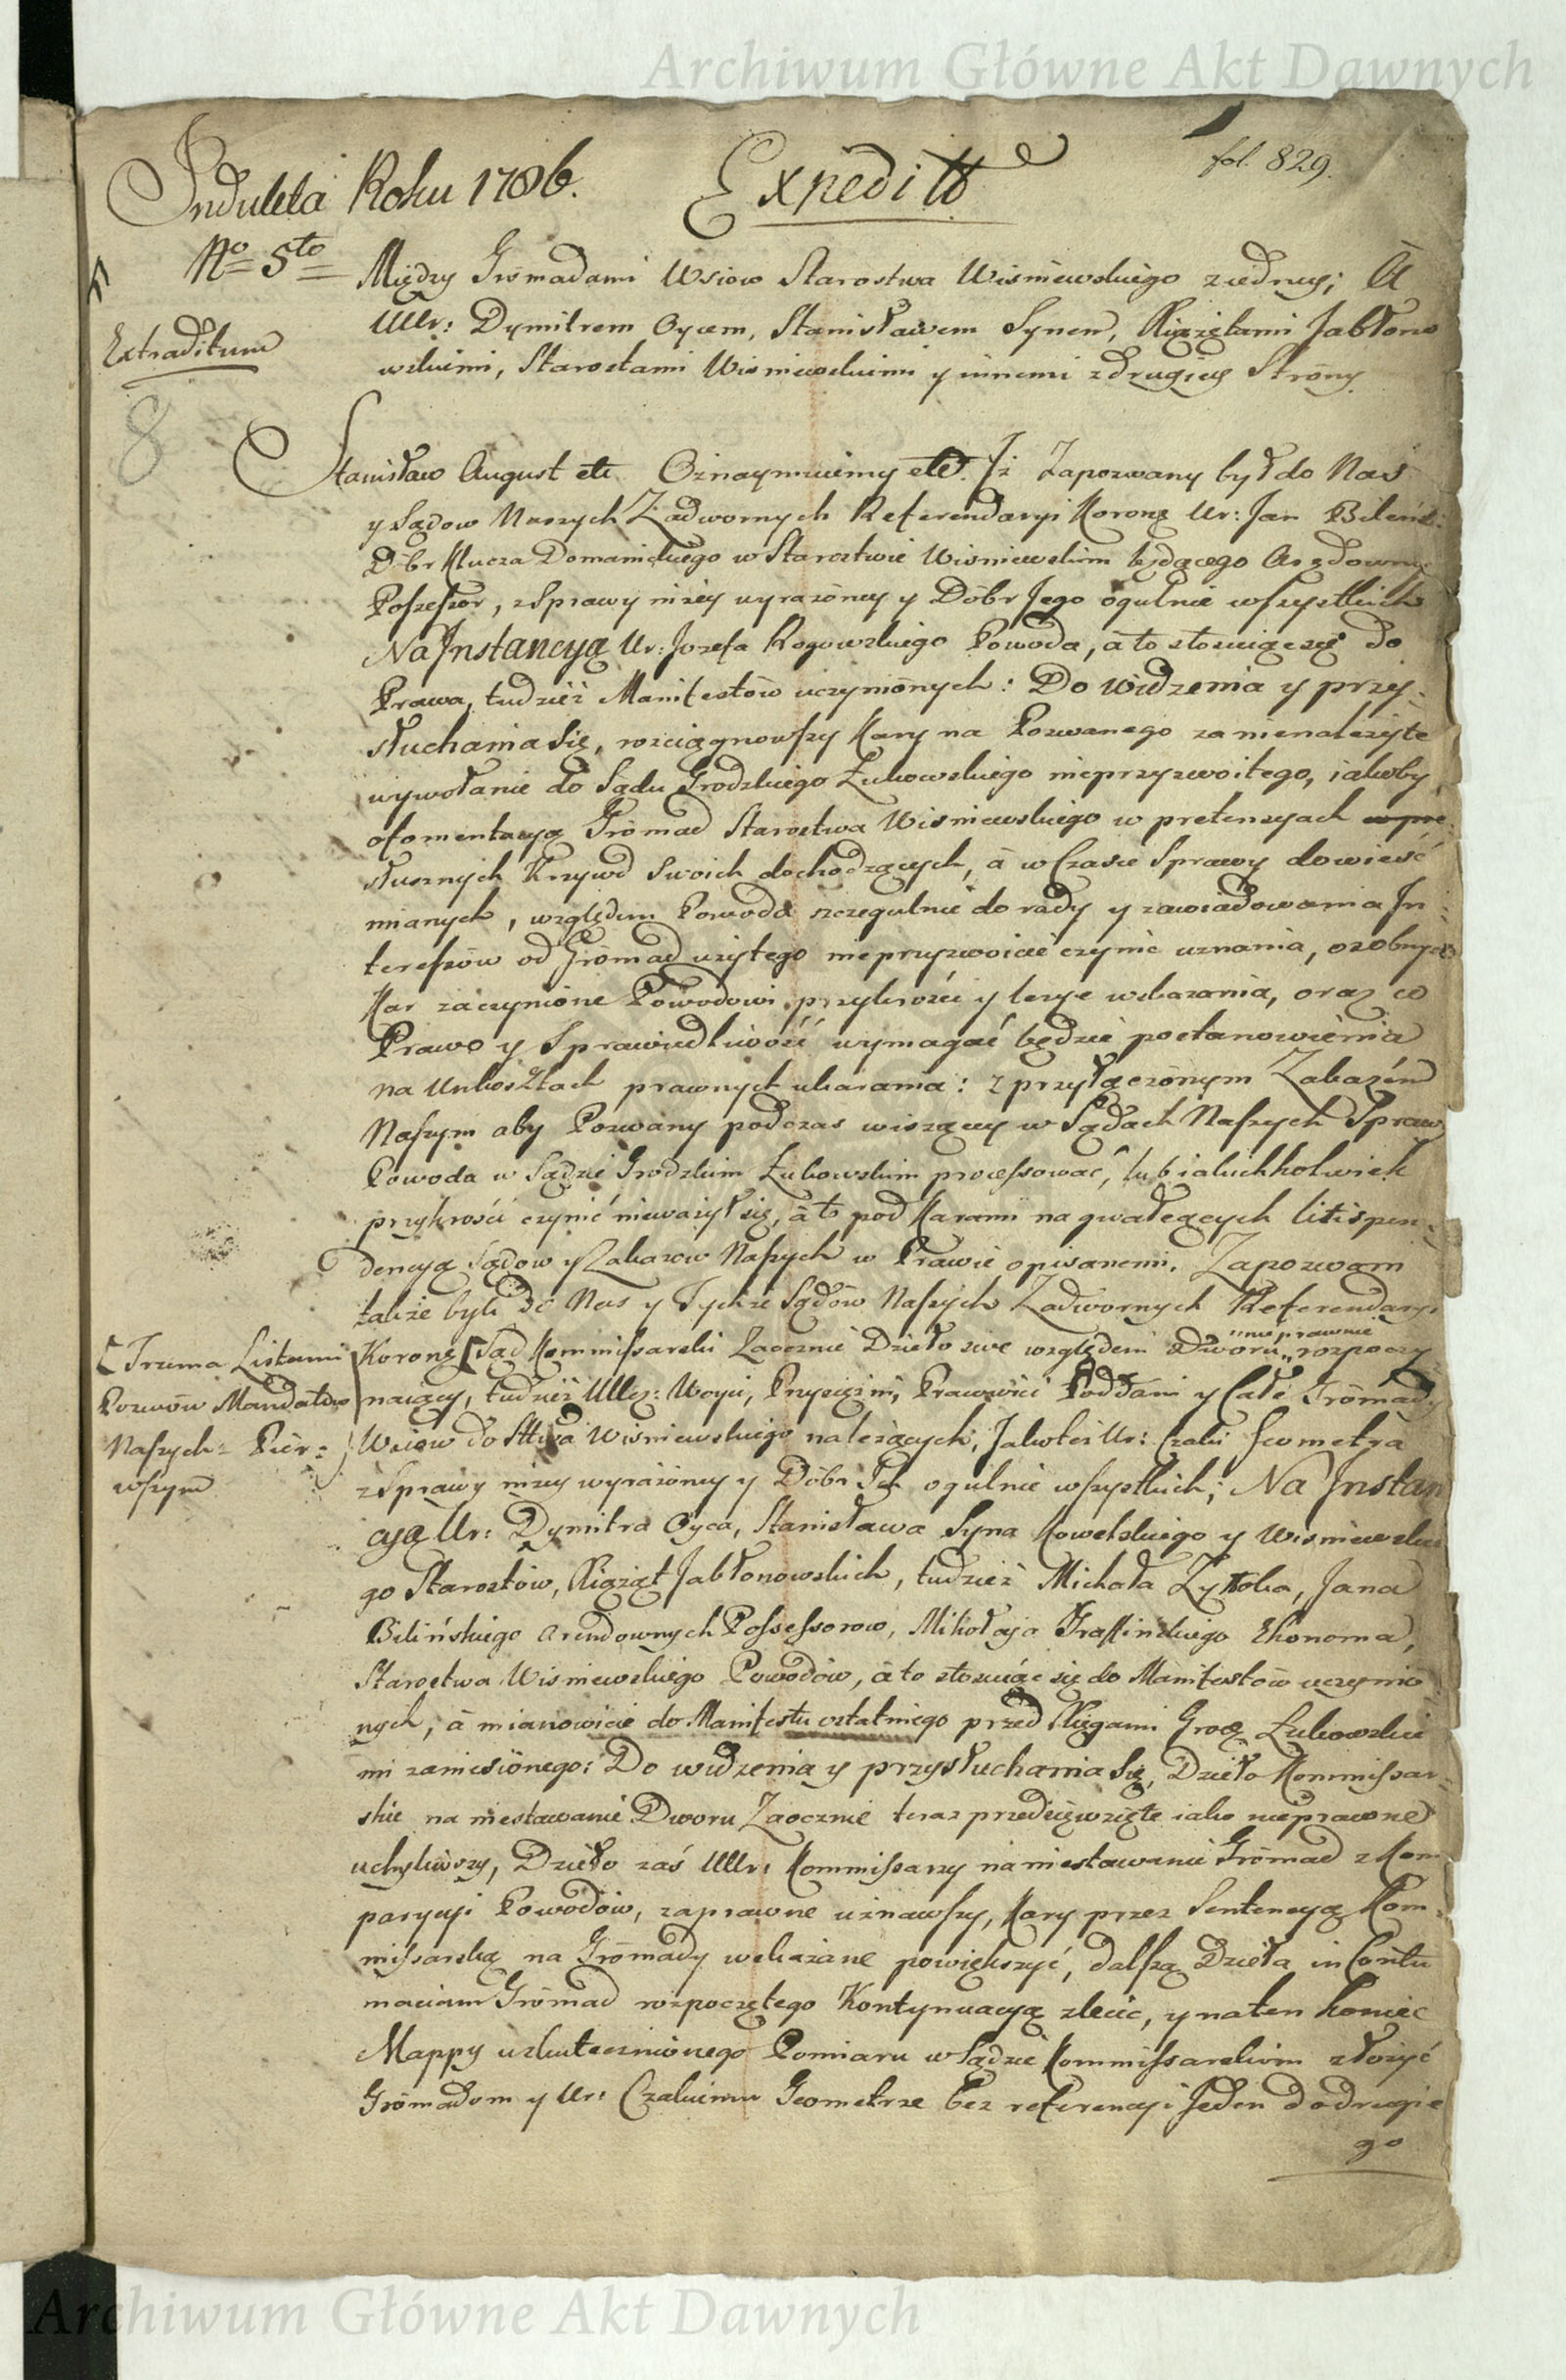 Archiwum Główne Akt Dawnych
fol. 829.
Indulta Roku 1786. Expedit
No 5to Między Gromadami Wsiow Starostwa Wisniewskiego z iedney; A
Extraditum
UUr: Dymitrem Oycem, Stanisławem Synem, Xiążętami Jabłono
wskimi, Starostami Wisniewskimi y innemi z drugiey Strony.
8
Stanisław August etc Oznaymuiemy etc. Iż Zapozwany był do Nas
y Sądow Naszych Zadwornych Referendaryi Koronę Ur: Jan Bilińs:
Dóbr Klucza Domanickiego w Starostwie Wisniewskim będącego Arędowny
Possessor, z Sprawy niżey wyrażoney y Dóbr Jego ogulnie wszystkich
Na Instancyą Ur: Jozefa Rogowskiego Powoda, a to stosuiąc się do
Prawa, tudzież Manifestów uczynionych: Do widzenia y przy-
słuchania Się, rozciągnowszy Kary na Pozwanego za nienależyte
wywołanie do Sądu Grodzkiego Łukowskiego nieprzyzwoitego, iakoby
o fomentacyą Gromad Starostwa Wisniewskiego w pretensyach
słusznych Krzywd Swoich dochodzących, a w Czasie Sprawy dowieść
mianych, względem Powoda szczegulnie do rady y zawiadowania In:
teressów od Gromad użytego nieprzyzwoicie czynić uznania, osobnych
Kar za czynione Powodowi przykrości y lezye wskazania, oraz co
Prawo y Sprawiedliwość wymagać będzie postanowienia
na Unkosztach prawnych ukarania: z przyłączonym Zakazem
Naszym aby Pozwany podczas wiszącey w Sądach Naszych Sprawy
Powoda w Sądzie Grodzkim Łukowskim processować, lub iakichkolwiek
przykrości czynić nieważył się, a to pod Karami na gwałcących litispen-
dencyą Sądow y Zakazow Naszych w Prawie opisanemi. Zapozwani
także byli do Nas y Tychże Sądów Naszych Zadwornych Referendaryi
[Trzema Listami
Pozwów Mandatów
Naszych: Pier:
wszym
nieprawnie
Koronę [Sąd Kommissarski Zaocznie Dzieło swe względem Dworu rozpoczy
naiący, tudzież UUcz: Woyci, Przysiężni, Prawowici Poddani y Całe Gromady
Wsiow do Sttwa Wisniewskiego należących, Jakoteż Ur: Czaki Geometra
z Sprawy niżey wyrażoney y Dóbr Ich ogulnie wszystkich; Na Instan
cyą Ur: Dymitra Oyca, Stanisława Syna Kowelskiego y Wisniewskie
go Starostów, Xiążąt Jabłonowskich, tudzież Michała Zytka, Jana
Bilińskiego Arendownych Possessorow, Mikołaja Ekonoma,
Starostwa Wisniewskiego Powodów, a to stosuiąc się do Manifestów uczynio
nych, a mianowicie do Manifestu ostatniego przed Xięgami Grodz Łukowskie
mi zaniesionego: Do widzenia y przysłuchania Się, Dzieło Kommissar-
skie na niestawanie Dworu Zaocznie teraz przedsięwzięte iako nieprawne
uchyliwszy, Dzieło zaś UUr: Kommissarzy na niestawanie Gromad z Kom
parycyi Powodów, za prawne uznawszy, Kary przez Sentencyą Kom-
missarską na Gromady wskazane powiększyć, dalszą Dzieła in Contu
maciam Gromad rozpoczętego Kontynuacyą zlecić, y na ten koniec
Mappy uskutecznionego Pomiaru w Sądzie Kommissarskim złożyć
Gromadom y Ur: Czakiemu Geometrze bez referencyi Jeden do drugie
go
Archiwum Główne Akt Dawnych